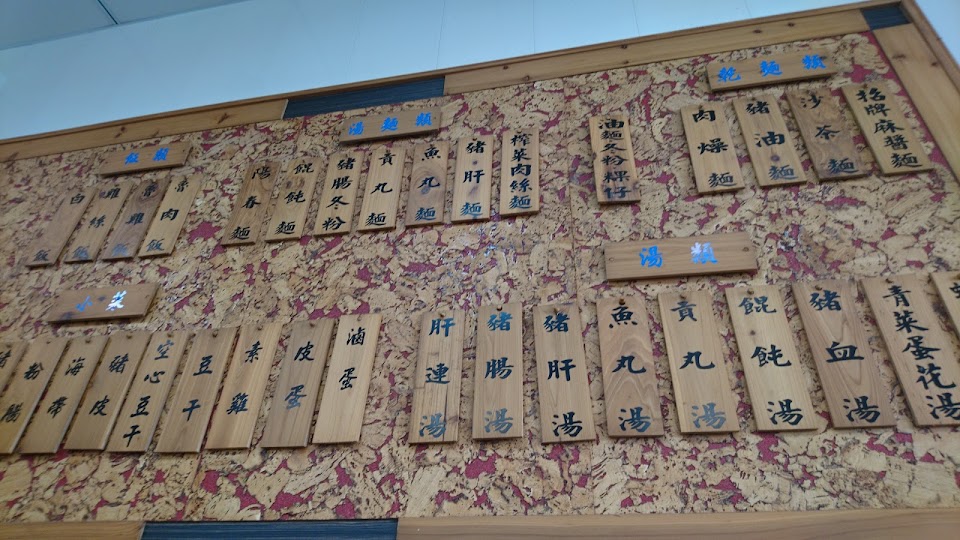 乾麵類
招牌麻醬麵
沙茶麵
豬油麵
肉燥麵
油麵冬粉粿仔
湯麵類
榨菜肉絲麵
豬肝麵
魚丸麵
貢丸麵
豬腸冬粉
餛飩麵
陽春麵
飯類
魯肉飯
雞絲飯
白飯
湯類
青菜蛋花湯
豬血湯
餛飩湯
貢丸湯
魚丸湯
豬肝湯
豬腸湯
肝連湯
小菜
滷蛋
皮蛋
素雞
豆干
空心豆干
豬皮
海帶
粉腸